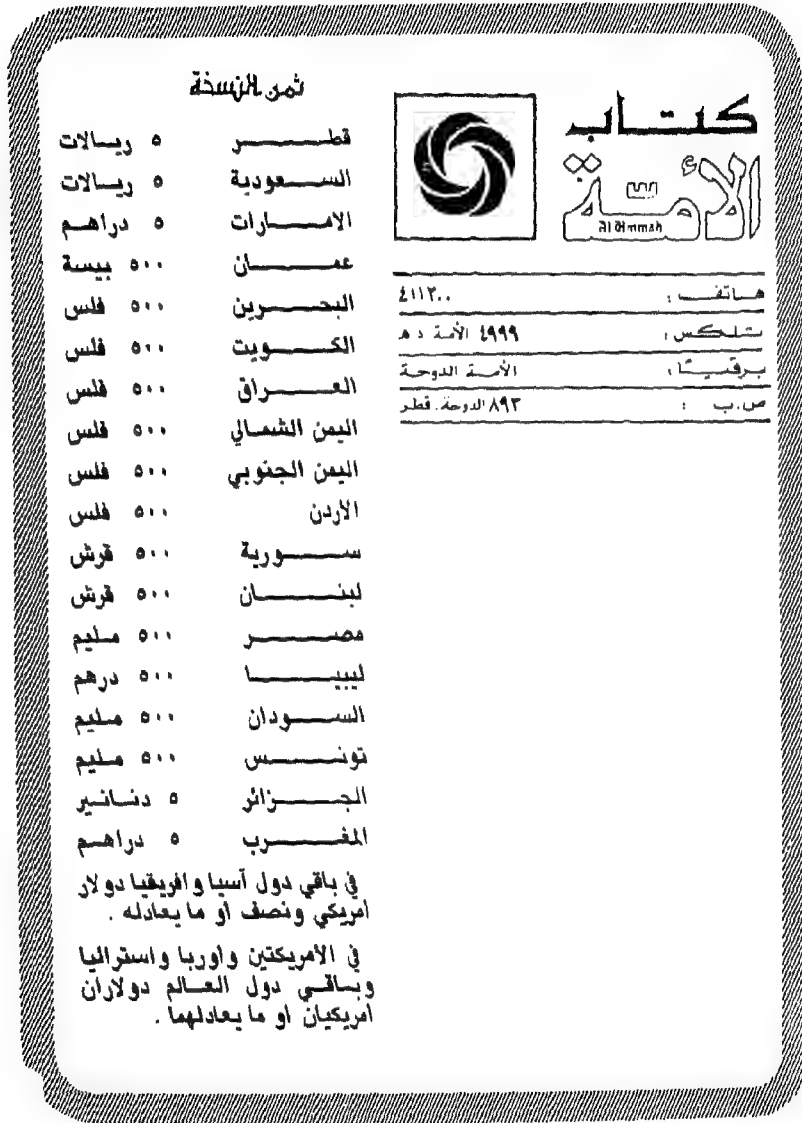 كتاب
الأمة
Al Ummah
هاتف : ٤١١٣٠٠
تلكس : ٤٩٩٩ الأمة د هـ
برقيا : الأمة الدوحة
ص.ب : ٨٩٣ الدوحة . قطر
ثمن النسخة
قطر ٥ ريالات
السعودية ٥ ريالات
الامارات ٥ دراهم
عمان ٥٠٠ بيسة
البحرين ٥٠٠ فلس
الكويت ٥٠٠ فلس
العراق ٥٠٠ فلس
اليمن الشمالي ٥٠٠ فلس
اليمن الجنوبي ٥٠٠ فلس
الأردن ٥٠٠ فلس
سورية ٥٠٠ قرش
لبنان ٥٠٠ قرش
مصر ٥٠٠ مليم
ليبيا ٥٠٠ درهم
السودان ٥٠٠ مليم
تونس ٥٠٠ مليم
الجزائر ٥ دنانير
المغرب ٥ دراهم
في باقي دول آسيا وافريقيا دولار
امريكي ونصف او ما يعادله .
في الأمريكتين واوربا واستراليا
وباقي دول العالم دولاران
امريكيان او ما يعادلهما .